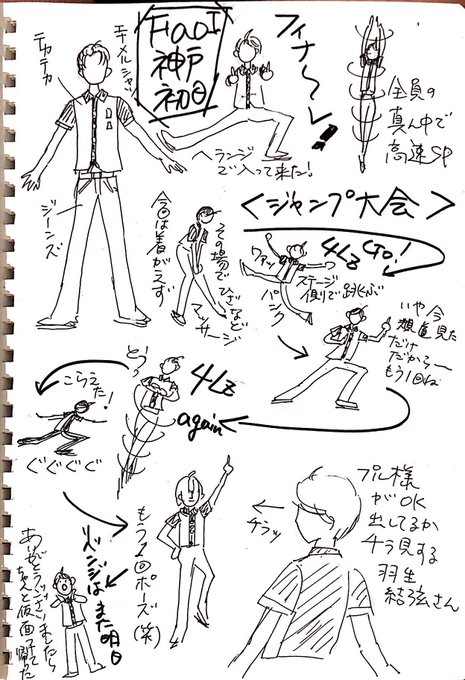 FaOI
神戸
初日
フィナ〜レ!
テカテカ
エナメルシャツ
ジーンズ
ヘランジ
で入って来た!
全員の
真ん中で
高速SP
<ジャンプ大会>
今回は着がえず
その場で
ひざなど
マッサージ
4Lz
CTO!
ワァッ
ステージ
側りで跳ぶ
パンク
いや今
軌道見た
だけ
だから〜
もう1回ね
4Lz
again
とうっ
こらえた!
ぐぐぐぐ
もう1回ポーズ(笑)
チラッ
プル様
がOK
出してるか
チラ見する
羽生
結弦さん
ズンジは
また明日
ありがとうございましたら
ちゃんと